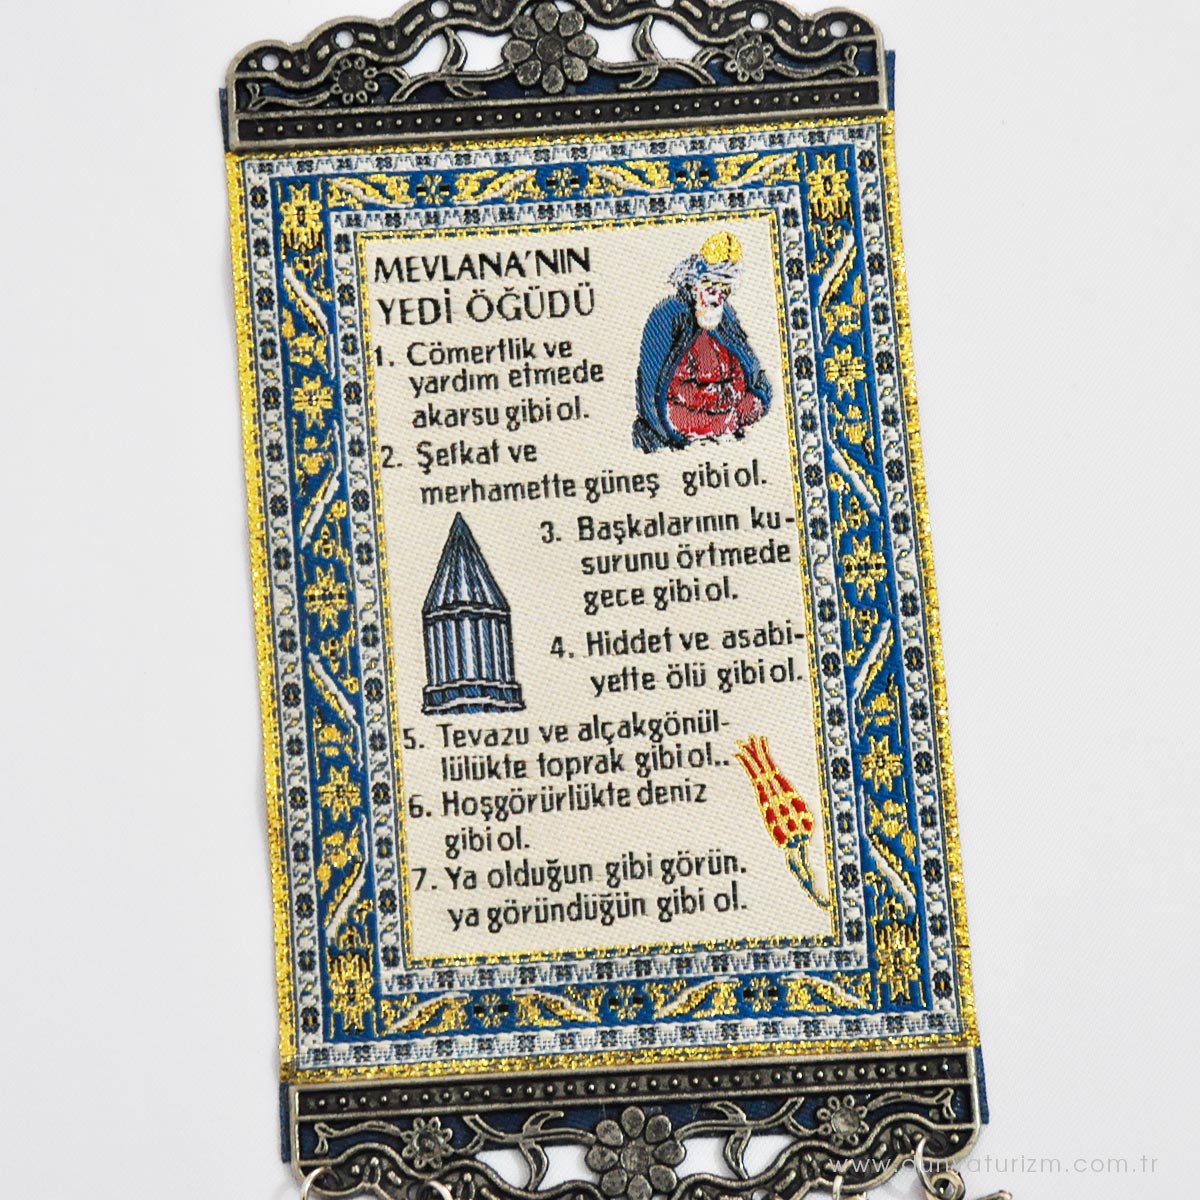 MEVLANA'NIN
YEDİ ÖĞÜDÜ
1. Cömertlik ve
yardım etmede
akarsu gibi ol.
2. Şefkat ve
merhamette güneş gibi ol.
3. Başkalarının ku-
surunu örtmede
gece gibi ol.
4. Hiddet ve asabi-
yette ölü gibi ol.
5. Tevazu ve alçakgönül-
lülükte toprak gibi ol..
6. Hoşgörürlükte deniz
gibi ol.
7. Ya olduğun gibi görün.
ya göründüğün gibi ol.
www.dunyaturizm.com.tr